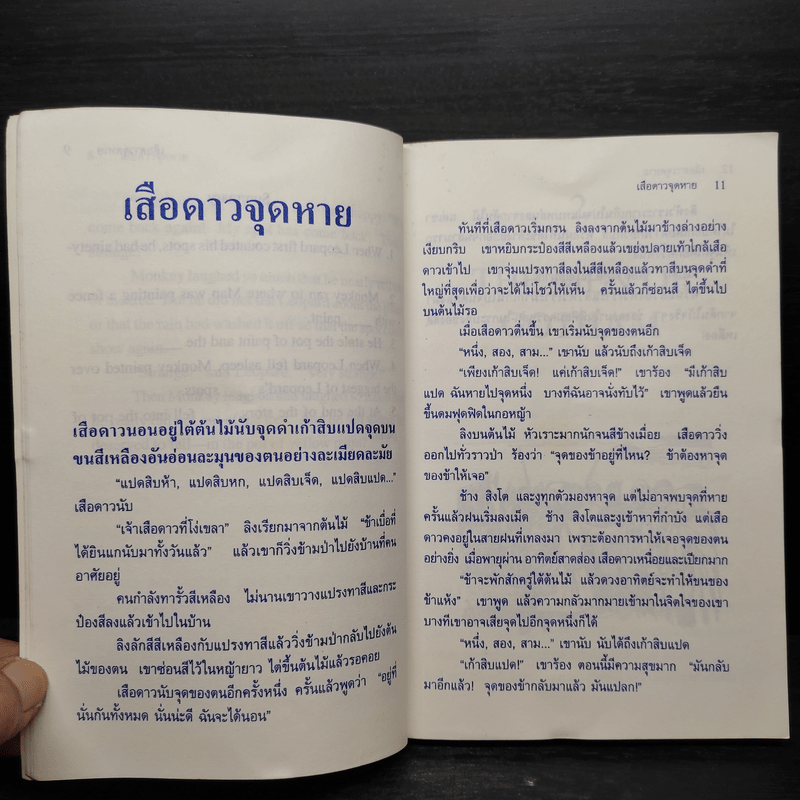 เสือดาวจุดหาย
เสือดาวนอนอยู่ใต้ต้นไม้นับจุดดำเก้าสิบแปดจุดบน
ขนสีเหลืองอันอ่อนละมุนของตนอย่างละเมียดละมัย
“แปดสิบห้า, แปดสิบหก, แปดสิบเจ็ด, แปดสิบแปด...”
เสือดาวนับ
“เจ้าเสือดาวที่โง่เขลา” ลิงเรียกมาจากต้นไม้ “ข้าเบื่อที่
ได้ยินแกนับมาทั้งวันแล้ว” แล้วเขาก็วิ่งข้ามป่าไปยังบ้านที่คน
อาศัยอยู่
คนกำลังทารั้วสีเหลือง ไม่นานเขาวางแปรงทาสีและกระ
ป๋องสีลงแล้วเข้าไปในบ้าน
ลิงลักสีสีเหลืองกับแปรงทาสีแล้ววิ่งข้ามป่ากลับไปยังต้น
ไม้ของตน เขาซ่อนสีไว้ในหญ้ายาว ไต่ขึ้นต้นไม้แล้วรอคอย
เสือดาวนับจุดของตนอีกครั้งหนึ่ง ครั้นแล้วพูดว่า “อยู่ที่
นั่นกันทั้งหมด นั่นน่ะดี ฉันจะได้นอน”
เสือดาวจุดหาย 11
ทันทีที่เสือดาวเริ่มกรน ลิงลงจากต้นไม้มาข้างล่างอย่าง
เงียบกริบ เขาหยิบกระป๋องสีสีเหลืองแล้วเขย่งปลายเท้าใกล้เสือ
ดาวเข้าไป เขาจุ่มแปรงทาสีลงในสีสีเหลืองแล้วทาสีบนจุดดำที่
ใหญ่ที่สุดเพื่อว่าจะได้ไม่โชว์ให้เห็น ครั้นแล้วก็ซ่อนสี ไต่ขึ้นไป
บนต้นไม้รอ
เมื่อเสือดาวตื่นขึ้น เขาเริ่มนับจุดของตนอีก
“หนึ่ง, สอง, สาม...” เขานับ แล้วนับถึงเก้าสิบเจ็ด
“เพียงเก้าสิบเจ็ด! แค่เก้าสิบเจ็ด!” เขาร้อง “มีเก้าสิบ
แปด ฉันหายไปจุดหนึ่ง บางทีฉันอาจนั่งทับไว้” เขาพูดแล้วยืน
ขึ้นดมฟุดฟิดในกอหญ้า
ลิงบนต้นไม้ หัวเราะมากนักจนสีข้างเมื่อย เสือดาววิ่ง
ออกไปทั่วราวป่า ร้องว่า “จุดของข้าอยู่ที่ไหน? ข้าต้องหาจุด
ของข้าให้เจอ”
ช้าง สิงโต และงูทุกตัวมองหาจุด แต่ไม่อาจพบจุดที่หาย
ครั้นแล้วฝนเริ่มลงเม็ด ช้าง สิงโตและงูเข้าหาที่กำบัง แต่เสือ
ดาวคงอยู่ในสายฝนที่เทลงมา เพราะต้องการหาให้เจอจุดของตน
อย่างยิ่ง เมื่อพายุผ่าน อาทิตย์สาดส่อง เสือดาวเหนื่อยและเปียกมาก
“ข้าจะพักสักครู่ใต้ต้นไม้ แล้วดวงอาทิตย์จะทำให้ขนของ
ข้าแห้ง” เขาพูด แล้วความกลัวมากมายเข้ามาในจิตใจของเขา
บางทีเขาอาจเสียจุดไปอีกจุดหนึ่งก็ได้
“หนึ่ง, สอง, สาม...” เขานับ นับได้ถึงเก้าสิบแปด
“เก้าสิบแปด!” เขาร้อง ตอนนี้มีความสุขมาก “มันกลับ
มาอีกแล้ว! จุดของข้ากลับมาแล้ว มันแปลก!”